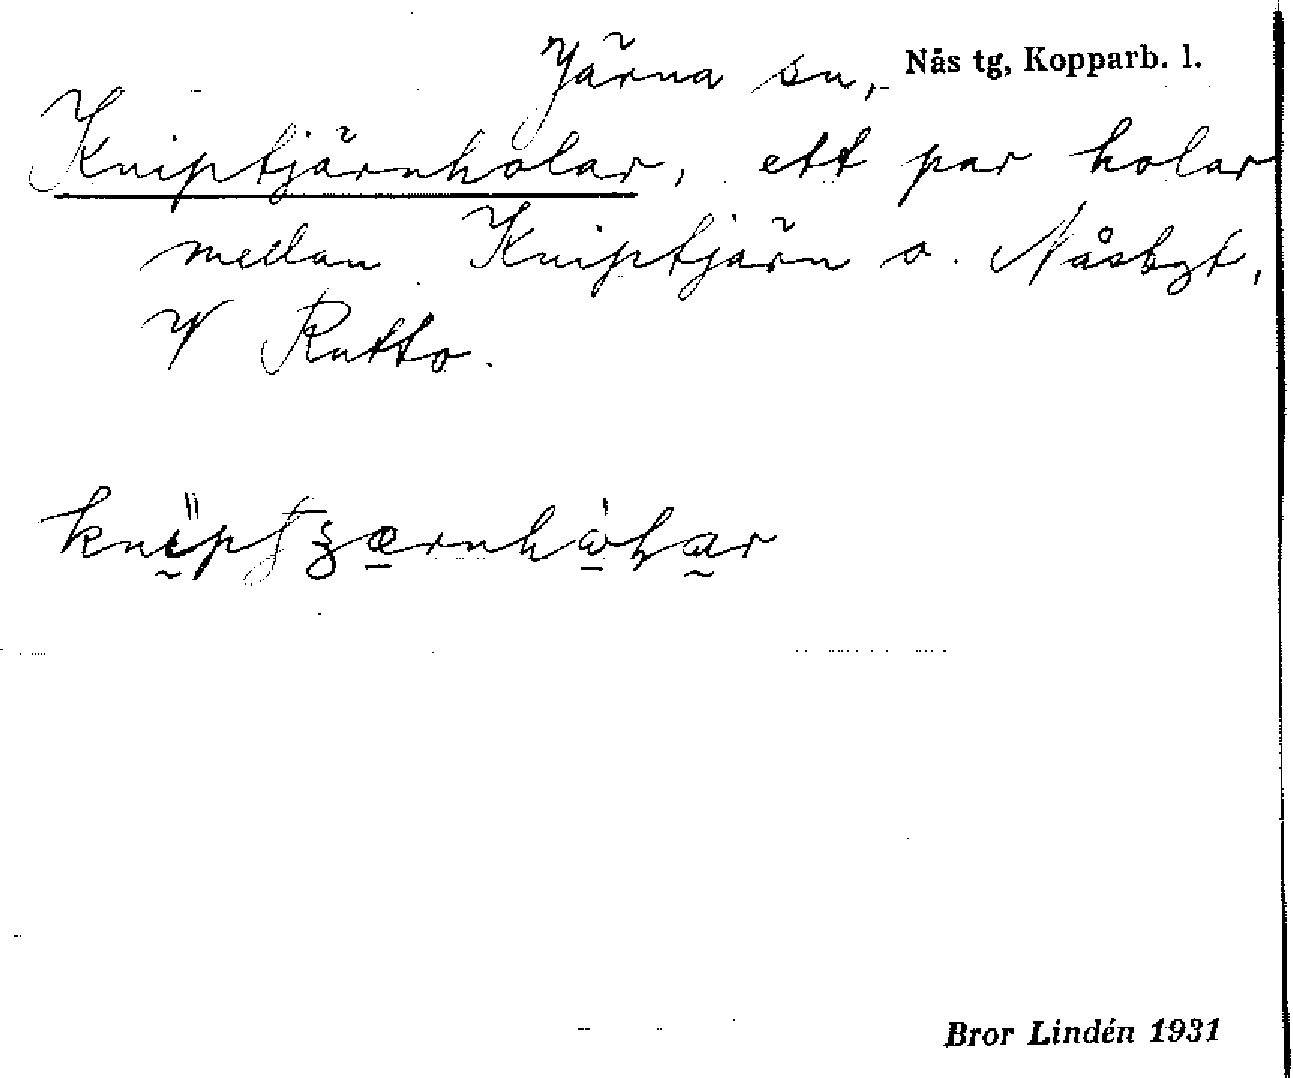 Järna sn, Nås tg, Kopparb. l.
Kniptjärnholar, ett par holar
mellan Kniptjärn o. Nåsbgt,
V Rutto.
Bror Lindén 1931